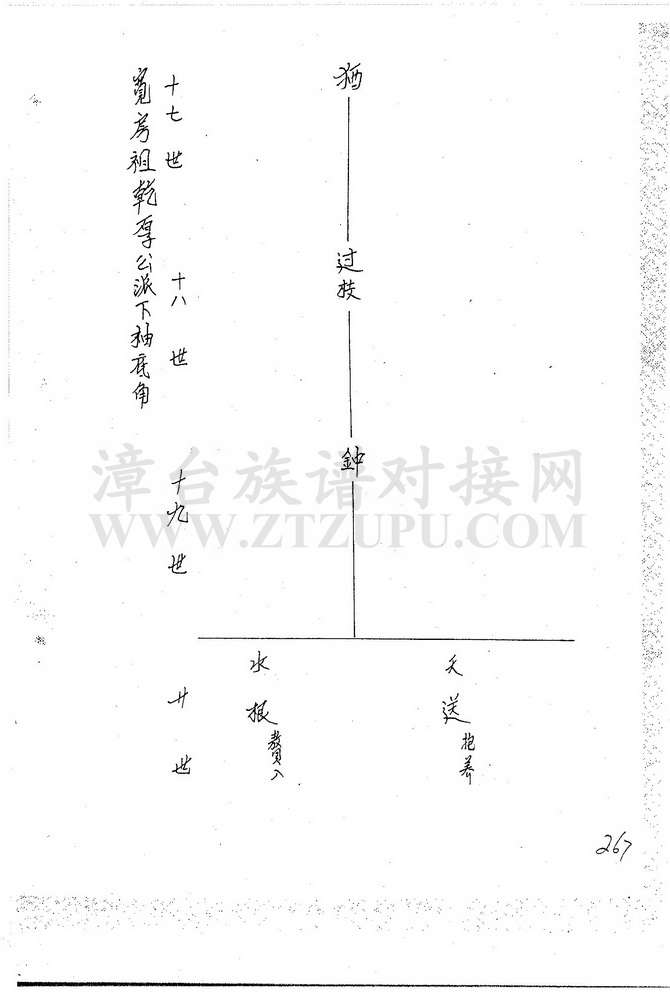 十七世
十八世
十九世
廿世
寬房祖乾厚公派下柚底角
猶
过技
鈡
天送
抱养
水根
漳台族谱对接网
WWW.ZTZUPU.COM
267